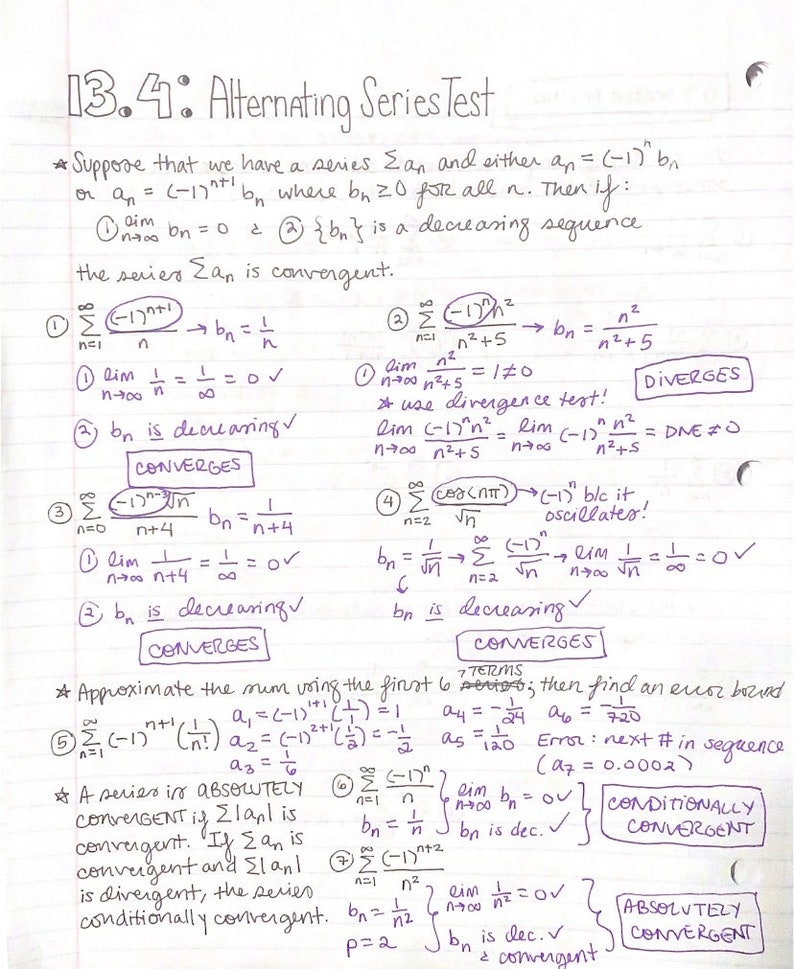 13.4: Alternating Series Test
* Suppose that we have a series Σan and either an = (-1)^n bn
or an = (-1)^(n+1) bn where bn ≥ 0 for all n. Then if:
① lim n→∞ bn = 0 & ② {bn} is a decreasing sequence
the series Σan is convergent.
① ∞ Σ n=1 (-1)^(n+1)/n → bn = 1/n
① lim n→∞ 1/n = 1/∞ = 0 ✓
② bn is decreasing ✓
CONVERGES
② ∞ Σ n=1 (-1)^n n²/(n²+5) → bn = n²/(n²+5)
① lim n→∞ n²/(n²+5) = 1 ≠ 0
DIVERGES
* use divergence test!
lim n→∞ (-1)^n n²/(n²+5) = lim n→∞ (-1)^n n²/(n²+5) = DNE ≠ 0
③ ∞ Σ n=0 (-1)^(n-3) √n/(n+4) bn = 1/(n+4)
① lim n→∞ 1/(n+4) = 1/∞ = 0 ✓
② bn is decreasing ✓
CONVERGES
④ ∞ Σ n=2 cos(nπ)/√n → (-1)^n b/c it
oscillates!
bn = 1/√n → ∞ Σ n=2 (-1)^n/√n → lim n→∞ 1/√n = 1/∞ = 0 ✓
bn is decreasing ✓
CONVERGES
* Approximate the sum using the first 6 TERMS; then find an error bound
⑤ ∞ Σ n=1 (-1)^(n+1) (1/n!)
a1 = (-1)^(1+1) (1/1) = 1
a2 = (-1)^(2+1) (1/2) = -1/2
a3 = 1/6
a4 = -1/24
a5 = 1/120
a6 = -1/720
Error: next # in sequence
(a7 = 0.0002)
* A series is ABSOLUTELY
convergENT if Σ|an| is
convergent. If Σan is
convergent and Σ|an|
is divergent, the series
conditionally convergent.
⑥ ∞ Σ n=1 (-1)^n/n
bn = 1/n
lim n→∞ bn = 0 ✓
bn is dec. ✓
CONDITIONALLY
CONVERGENT
⑦ ∞ Σ n=1 (-1)^(n+2)/n²
bn = 1/n²
p = 2
lim n→∞ 1/n² = 0 ✓
bn is dec. ✓
& convergent
ABSOLUTELY
CONVERGENT